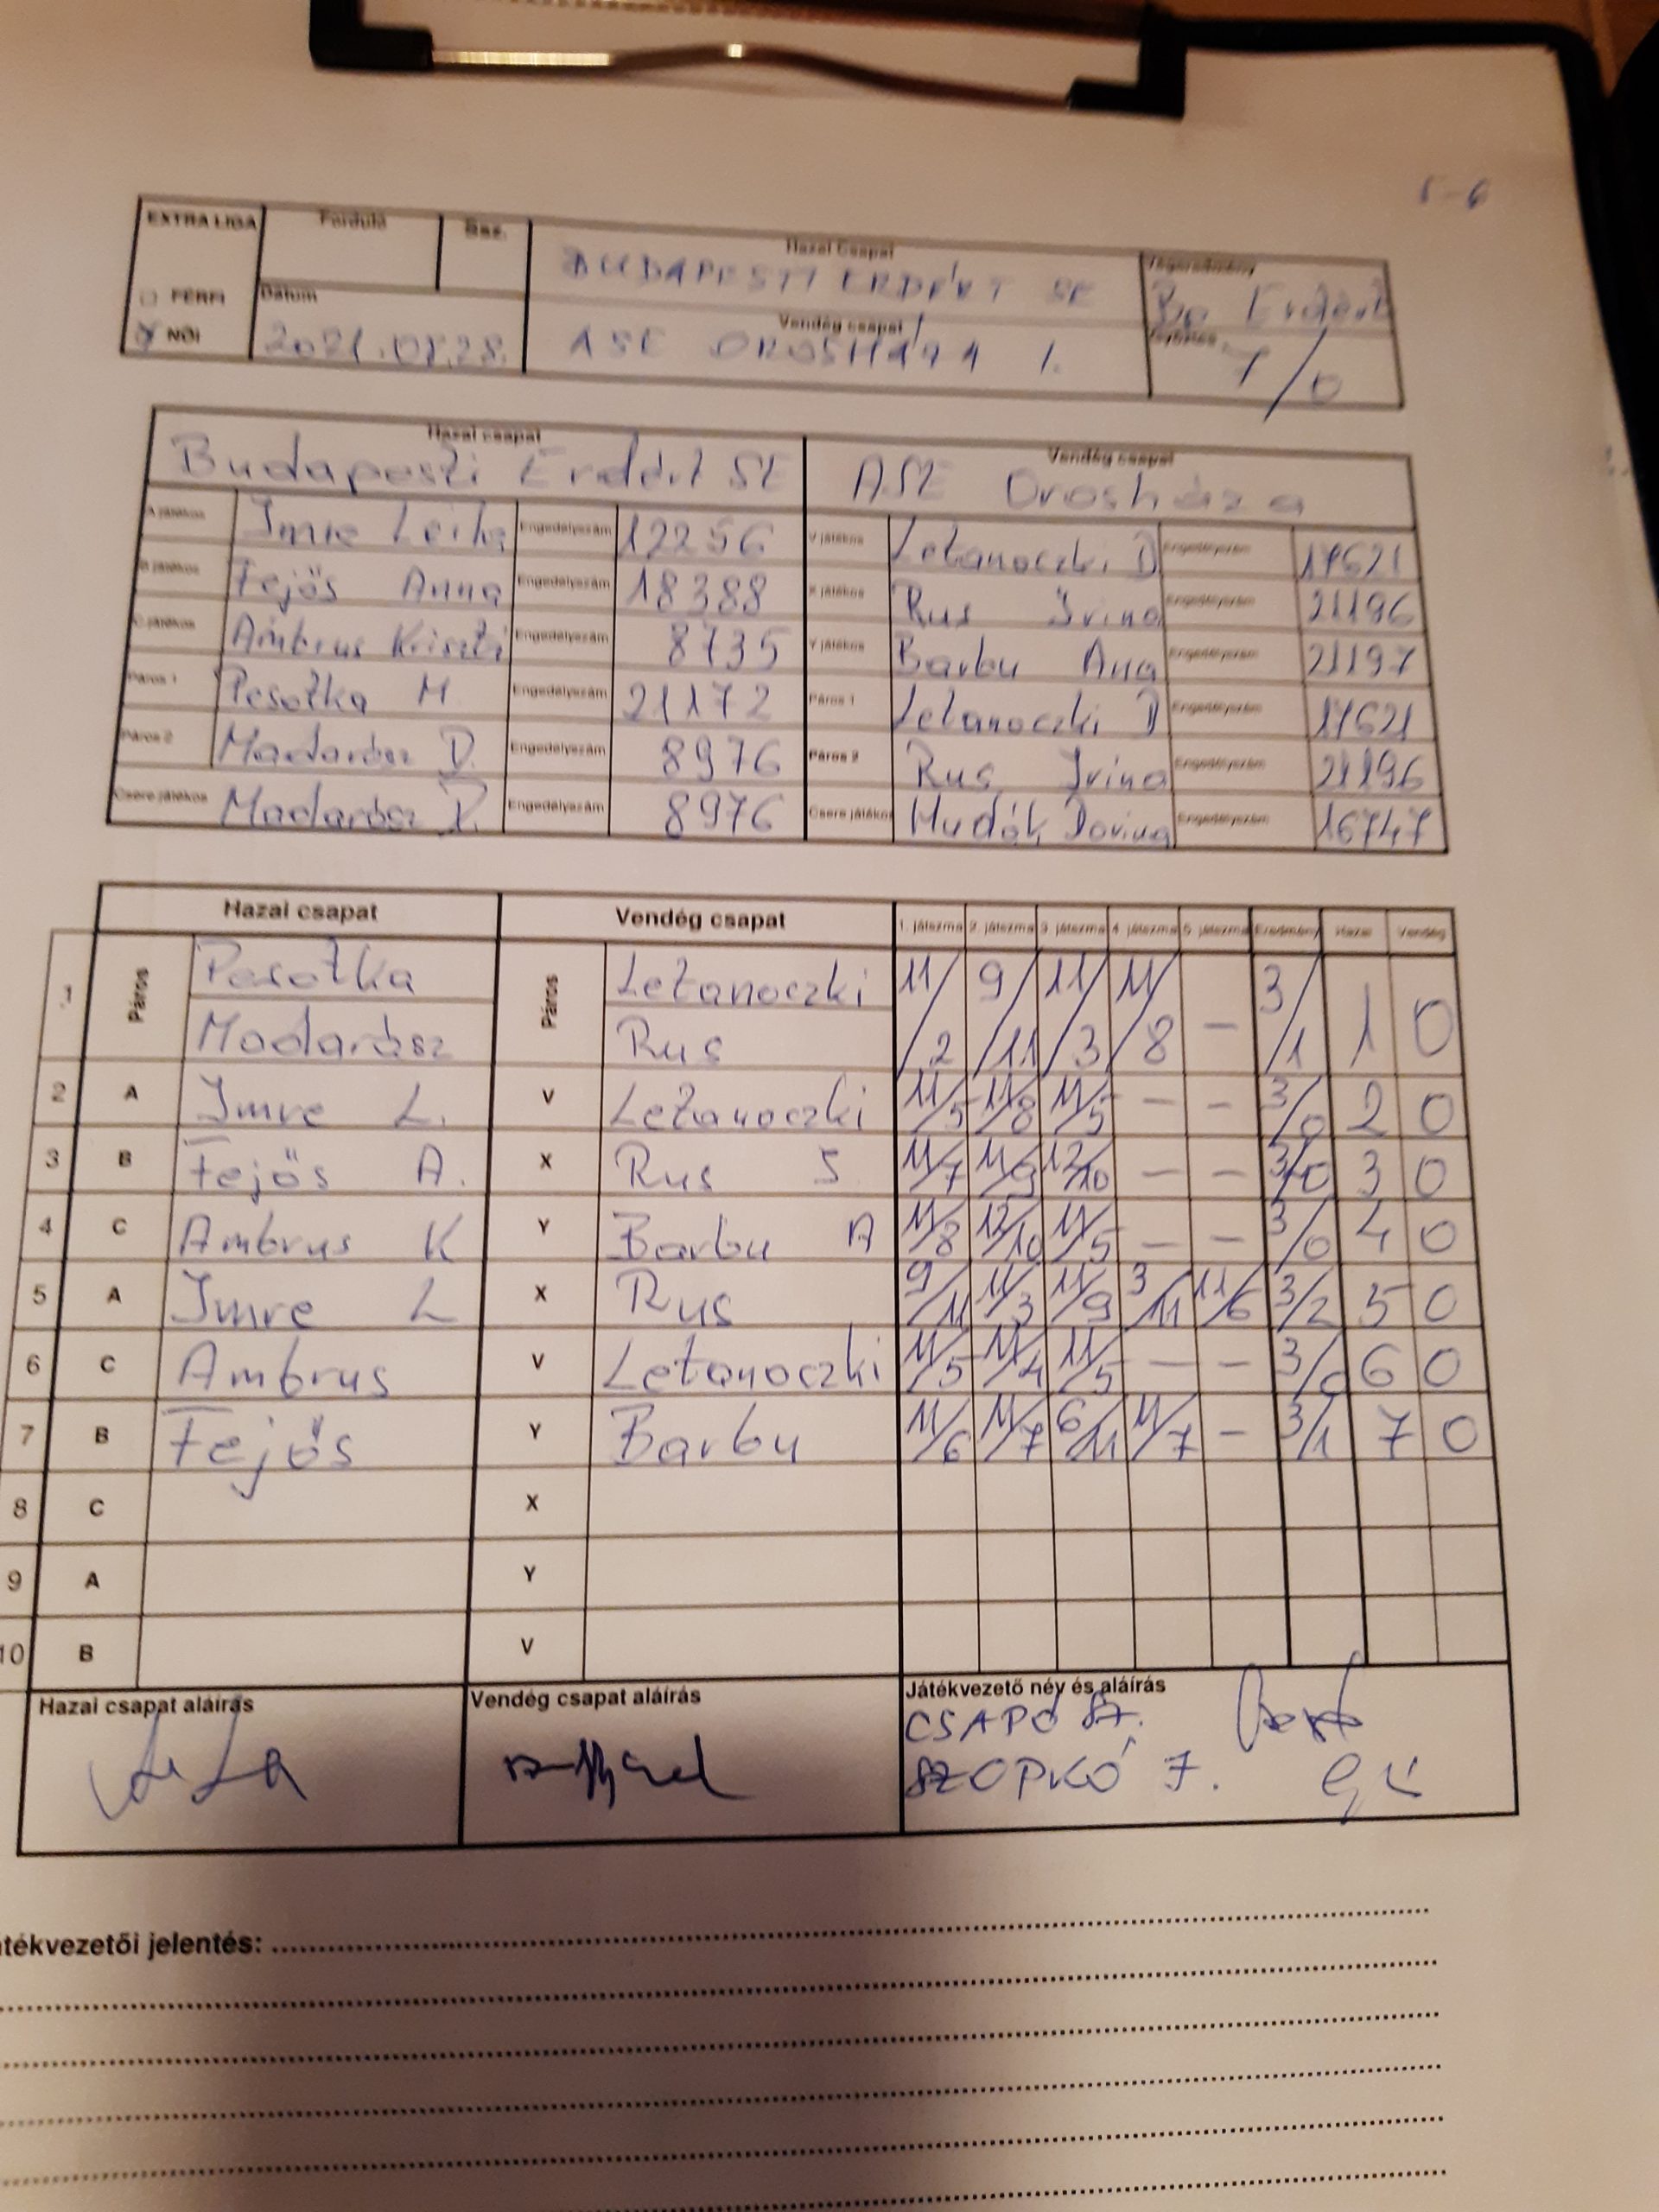 5-6
EXTRA LIGA Forduló Hazai Csapat
BUDAPESTI ERDÉRT SE Végeredmény
FÉRFI Dátum Bp Erdért
NŐI 2021.08.28. Vendég csapat
ASE OROSHÁZA 1. 7/0
Hazai csapat Vendég csapat
Budapesti Erdért SE ASE Orosháza
A játékos Imre Leila Engedélyszám 12256 V játékos Letanoczki D Engedélyszám 17621
B játékos Fejős Anna Engedélyszám 18388 X játékos Rus Irina Engedélyszám 21196
C játékos Ambrus Kriszti Engedélyszám 8735 Y játékos Barbu Ana Engedélyszám 21197
Páros 1 Pesotka M Engedélyszám 21172 Páros 1 Letanoczki D Engedélyszám 17621
Páros 2 Madarász D. Engedélyszám 8976 Páros 2 Rus Irina Engedélyszám 21196
Csere játékos Madarász D. Engedélyszám 8976 Csere játékos Hudák Dorina Engedélyszám 16747
Hazai csapat Vendég csapat 1. játszma 2. játszma 3. játszma 4. játszma 5. játszma Eredmény Hazai Vendég
1 Páros Pesotka Páros Letanoczki 11/2 9/11 11/3 11/8 - 3/1 1 0
Madarász Rus
2 A Imre L. V Letanoczki 11/5 11/8 11/5 - - 3/0 2 0
3 B Fejős A. X Rus I 11/7 11/9 12/10 - - 3/0 3 0
4 C Ambrus K Y Barbu A 11/8 12/10 11/5 - - 3/0 4 0
5 A Imre L X Rus 9/11 11/3 11/9 3/11 11/6 3/2 5 0
6 C Ambrus V Letanoczki 11/5 11/4 11/5 - - 3/0 6 0
7 B Fejős Y Barbu 11/6 11/7 6/11 11/7 - 3/1 7 0
8 C X
9 A Y
10 B V
Hazai csapat aláírás Vendég csapat aláírás Játékvezető név és aláírás
CSAPÓ SZ.
SZOPKÓ J.
tékvezetői jelentés: